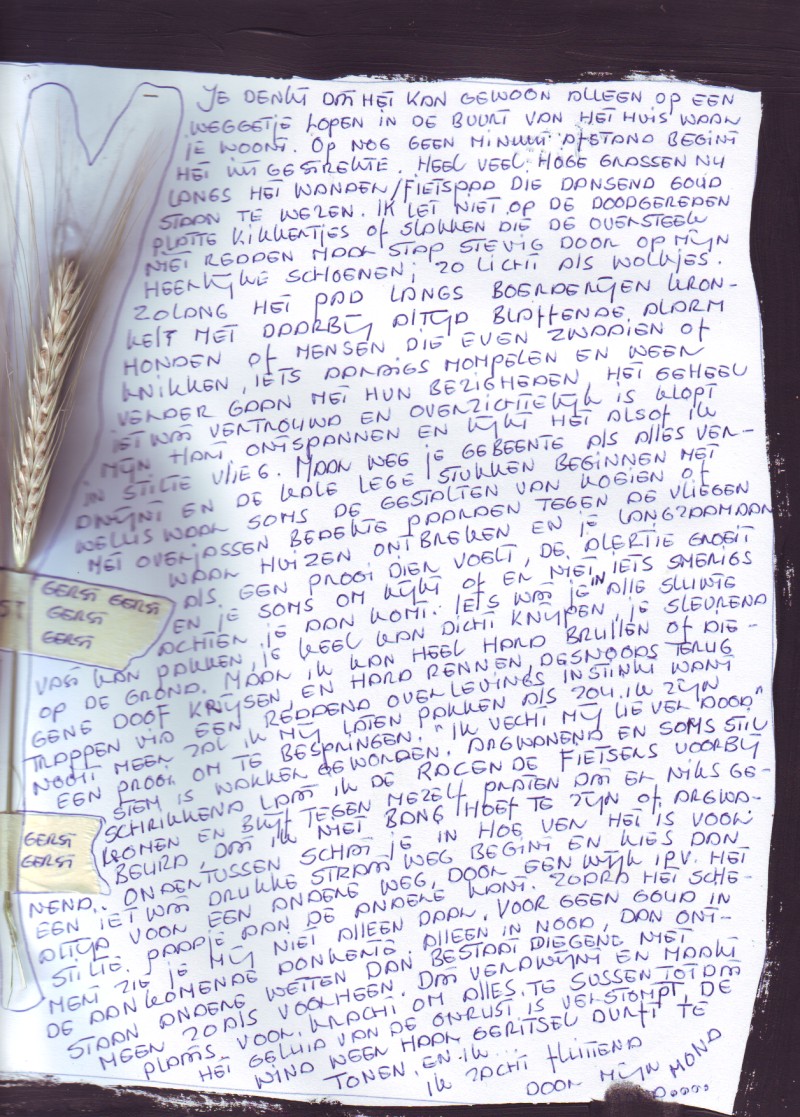 JE DENKT DAT HET KAN GEWOON ALLEEN OP EEN
WEGGETJE LOPEN IN DE BUURT VAN HET HUIS WAAR
JE WOONT. OP NOG GEEN MINUUT AFSTAND BEGINT
HET UITGESTREKTE. HEEL VEEL HOGE GRASSEN NU
LANGS HET WANDEL/FIETSPAD DIE DANSEND GOUD
STAAN TE WEZEN. IK LET NIET OP DE DOODGEREDEN
PLATTE KIKKERTJES OF SLAKKEN DIE DE OVERSTEEK
NIET REDDEN MAAR STAP STEVIG DOOR OP MIJN
HEERLIJKE SCHOENEN; ZO LICHT ALS WOLKJES.
ZOLANG HET PAD LANGS BOERDERIJEN KRON-
KELT MET DAARBIJ ALTIJD BLAFFENDE ALARM
HONDEN OF MENSEN DIE EVEN ZWAAIEN OF
KNIKKEN, IETS AARDIGS MOMPELEN EN WEER
VERDER GAAN MET HUN BEZIGHEDEN HET GEHEEL
IETWAT VERTROUWD EN OVERZICHTELIJK IS KLOPT
MIJN HART ONTSPANNEN EN LIJKT HET ALSOF IK
IN STILTE VLIEG. MAAR WEE JE GEBEENTE ALS ALLES VER-
DWIJNT EN DE KALE LEGE STUKKEN BEGINNEN MET
WELLIS WAAR SOMS DE GESTALTEN VAN KOEIEN OF
MET OVERJASSEN BEDEKTE PAARDEN TEGEN DE VLIEGEN
WAAR HUIZEN ONTBREKEN EN JE LANGZAAMAAN
ALS EEN PROOI DIER VOELT, DE ALERTIE GROEIT
EN JE SOMS OM KIJKT OF ER NIET IETS SMERIGS
ACHTER JE AAN KOMT. IETS WAT JE IN ALLE SLUWTE
VAST KAN PAKKEN, JE KEEL KAN DICHT KNIJPEN, JE SLEUREND
OP DE GROND. MAAR IK KAN HEEL HARD BRULLEN OF DIE-
GENE DOOF KRIJSEN, EN HARD RENNEN, DESNOODS TERUG
TRAPPEN VIA EEN REDDEND OVERLEVINGS INSTINKT WANT
NOOIT MEER ZAL IK MIJ LATEN PAKKEN ALS ZOU IK ZIJN
EEN PROOI OM TE BESPRINGEN. "IK VECHT MIJ LIEVER DOOD."
STEM IS WAKKER GEWORDEN. ARGWANEND EN SOMS STIL
SCHRIKKEND LAAT IK DE RACENDE FIETSERS VOORBIJ
KOMEN EN BLIJF TEGEN MEZELF PRATEN DAT ER NIKS GE-
BEURD, DAT IK NIET BANG HOEF TE ZIJN OF ARGWA-
NEND.. ONDERTUSSEN SCHAT JE IN HOE VER HET IS VOOR
EEN IETWAT DRUKKE STRAATWEG BEGINT EN KIES DAN
ALTIJD VOOR EEN ANDERE WEG, DOOR EEN WIJK I.P.V. HET
STILTE PAADJE AAN DE ANDERE KANT. ZODRA HET SCHE-
MERT ZIE JE MIJ NIET ALLEEN DAAR. VOOR GEEN GOUD IN
DE AANKOMENDE DONKERTE. ALLEEN IN NOOD, DAN ONT-
STAAN ANDERE WETTEN DAN BESTAAT DIEGENE NIET
MEER ZOALS VOORHEEN. DAT VERDWIJNT EN MAAKT
PLAATS VOOR KRACHT OM ALLES TE SUSSEN TOTDAT
HET GELUID VAN DE ONRUST IS VERSTOMPT, DE
WIND WEER HAAR GERITSEL DURFT TE
TONEN. EN IK...
IK ZACHT FLUITEND
DOOR MIJN MOND
O.....
GERST GERST
GERST
GERST
ST
GERST
GERST